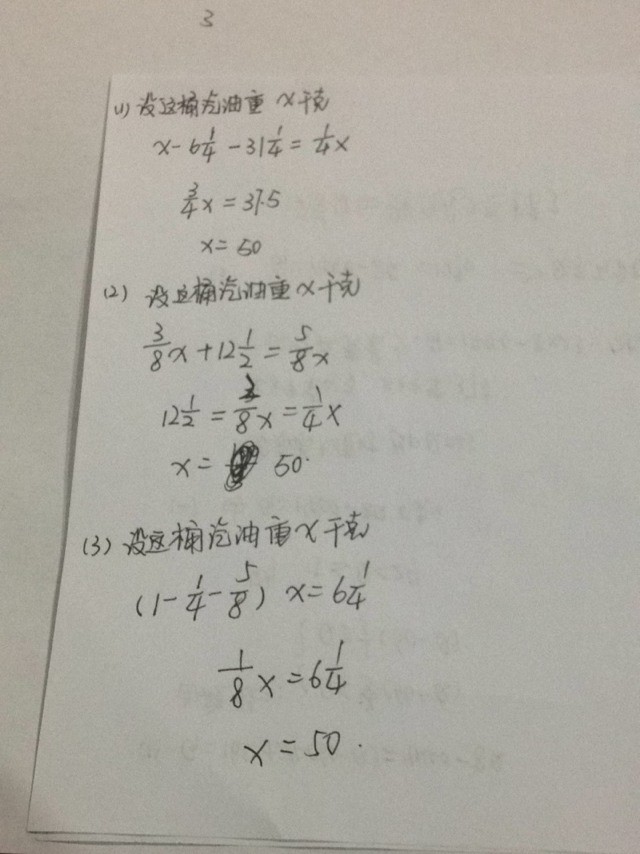 3
(1) 设这桶汽油重 x 千克
x - 6 1/4 - 31 1/4 = 1/4 x
3/4 x = 37.5
x = 50
(2) 设这桶汽油重 x 千克
3/8 x + 12 1/2 = 5/8 x
12 1/2 = 2/8 x = 1/4 x
x = 50.
(3) 设这桶汽油重 x 千克
(1 - 1/4 - 5/8) x = 6 1/4
1/8 x = 6 1/4
x = 50.